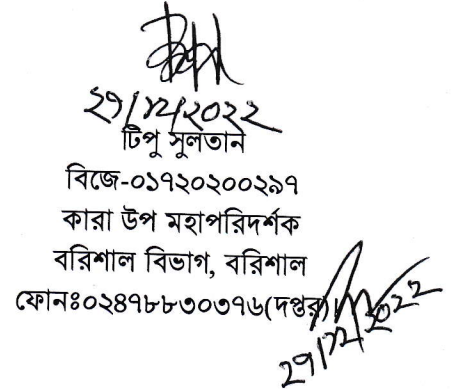 ২৭/১২/২০২২
টিপু সুলতান
বিজে-০১৭২০২০০২৯৭
কারা উপ মহাপরিদর্শক
বরিশাল বিভাগ, বরিশাল
ফোনঃ০২৪৭৮৮৩০৩৭৬(দপ্তর)
২৭/১২/২০২২